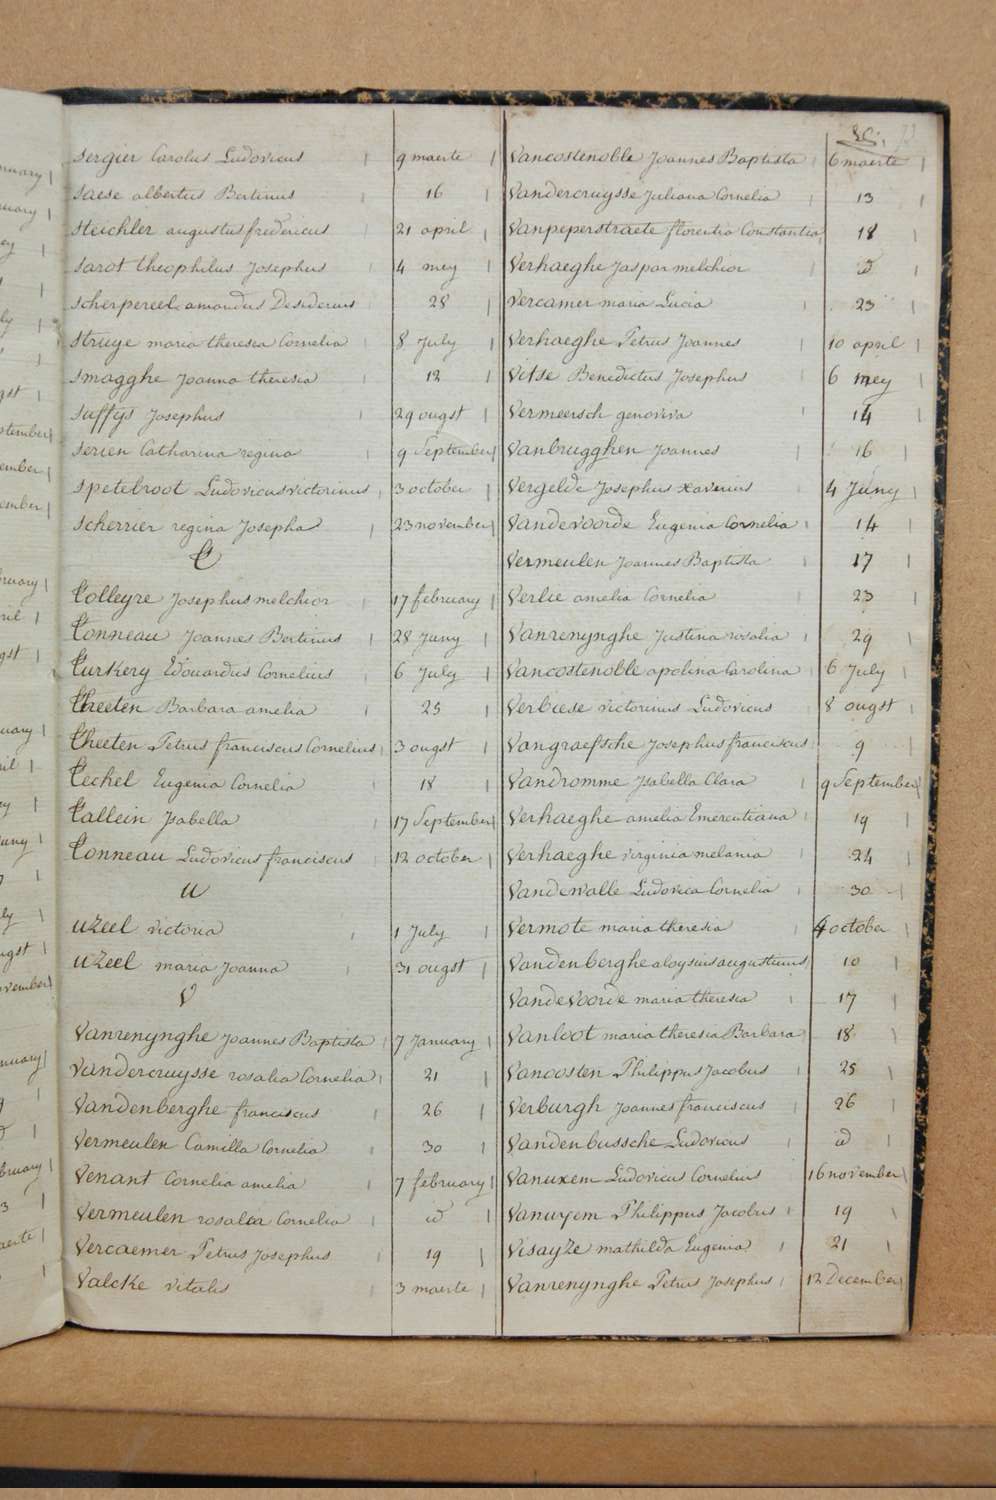 Sergier Carolus Ludovicus 9 maerte
Saese albertus Bertinus 16
Steichler augustus fredericus 21 april
Sarot theophilus Josephus 4 mey
Scherpereel amandus Desiderius 28
Struye maria theresia Cornelia 8 July
Smagghe Joanna theresia 12
Suffys Josephus 29 ougst
Serien Catharina regina 9 September
Spetebroot Ludovicus victorinus 3 october
Scherrier regina Josepha 23 november
T
Tolleyre Josephus melchior 17 february
Tonneau Joannes Bertinus 28 Juny
Turkery Edouardus Cornelius 6 July
Theeten Barbara amelia 25
Theeten Petrus franciscus Cornelius 3 ougst
Techel Eugenia Cornelia 18
Tallein Isabella 17 September
Tonneau Ludovicus franciscus 12 october
U
Uzeel victoria 1 July
Uzeel maria Joanna 31 ougst
V
Vanrenynghe Joannes Baptista 7 January
Vandercruysse rosalia Cornelia 21
Vandenberghe franciscus 26
Vermeulen Camilla Cornelia 30
Venant Cornelia amelia 7 february
Vermeulen rosalia Cornelia id
Vercaemer Petrus Josephus 19
Valcke vitalis 3 maerte
Vancostenoble Joannes Baptista 6 maerte
Vandercruysse Juliana Cornelia 13
Vanpeperstraete florentia Constantia 18
Verhaeghe Jaspar melchior id
Vercamer maria Lucia 23
Verhaeghe Petrus Joannes 10 april
Vitse Benedictus Josephus 6 mey
Vermeersch genoviva 14
Vanbrugghen Joannes 16
Vergelde Josephus xaverius 4 Juny
Vandevoorde Eugenia Cornelia 14
Vermeulen Joannes Baptista 17
Verlie amelia Cornelia 23
Vanrenynghe Justina rosalia 29
Vancostenoble apolina Carolina 6 July
Verbiese victorinus Ludovicus 8 ougst
Vangraefsche Josephus franciscus 9
Vandromme Isabella Clara 9 September
Verhaeghe amelia Emerentiana 19
Verhaeghe virginia melania 24
Vandewalle Ludovica Cornelia 30
Vermote maria theresia 4 october
Vandenberghe aloysius augustinus 10
Vandevoorde maria theresia 17
Vanloot maria theresia Barbara 18
Vanoosten Philippus Jacobus 25
Verburgh Joannes franciscus 26
Vandenbussche Ludovicus id
Vanuxem Ludovicus Cornelius 16 november
Vanuxem Philippus Jacobus 19
Visayze mathilda Eugenia 21
Vanrenynghe Petrus Josephus 12 December